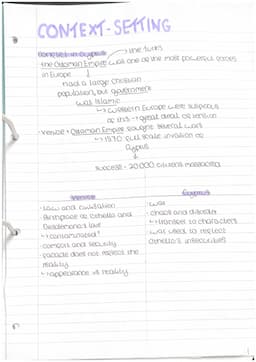 CONTEXT-SETTING
Conflict in Cyprus
↳ the Turks
· the Ottoman Empire was one of the most powerful forces
in Europe
had a large christian
population, but government
was Islamic
↳ western Europe were
of this → great deal of tension
· Venice + Ottoman Empire fought several wars
↳ 1570 full scale invasion of
Cyprus
success - 20,000 citizens massacred
Venice
· Law and civilisation
· Birthplace of Othello and
Desdemona's love
↳ consummated?
· comfort and security
· facade does not reflect the
reality
↳ appearance vs reality
Cyprus
· war
· chaos and disorder
↳ transfers to characters
· war used to reflect
Othello's insecurities